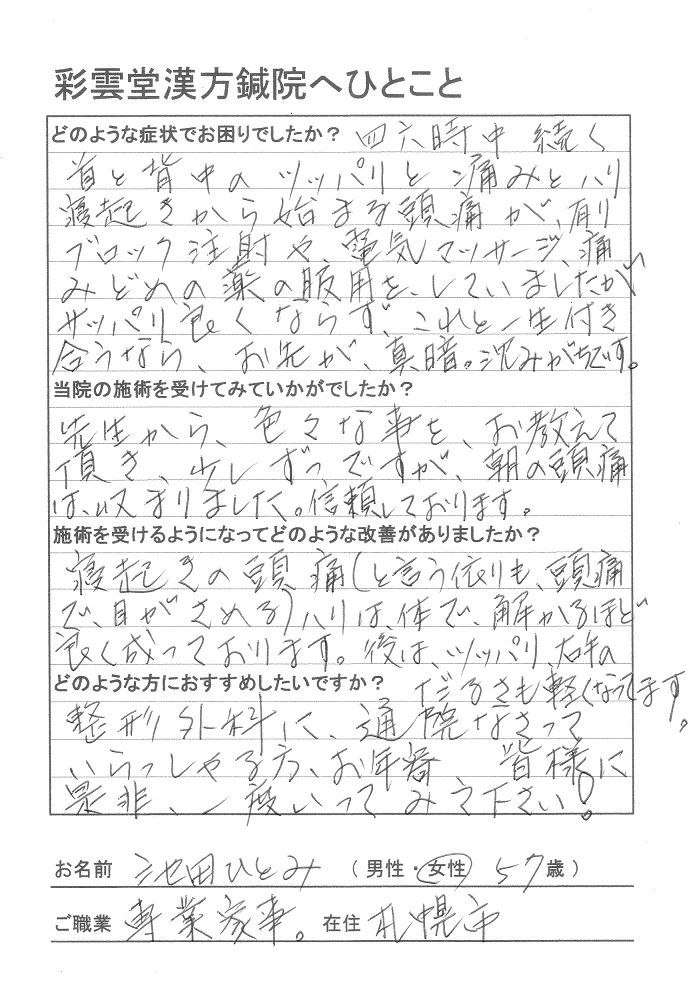 彩雲堂漢方鍼院へひとこと
どのような症状でお困りでしたか? 四六時中 続く
首と背中のツッパリと痛みとハリ
寝起きから始まる頭痛が、有り
ブロック注射や、電気マッサージ、痛
みどめの薬の服用を、していましたが、
サッパリ良くならず、これと一生付き
合うなら、お先が、真暗。沈みがちです。
当院の施術を受けてみていかがでしたか?
先生から、色々な事を、お教えて
頂き、少しずつですが、朝の頭痛
は、収まりました。信頼しております。
施術を受けるようになってどのような改善がありましたか?
寝起きの頭痛(と言う依りも、頭痛
で、目がさめる)ハリは、体で、解かるほど
良く成っております。後は、ツッパリ、右手の
どのような方におすすめしたいですか? だるさも軽くなってます。
整形外科に、通院なさって
いらっしゃる方、お年寄 皆様に
是非、一度いってみて下さい!
お名前 池田ひとみ (男性・女性) 57歳)
ご職業 専業家事。 在住 札幌市